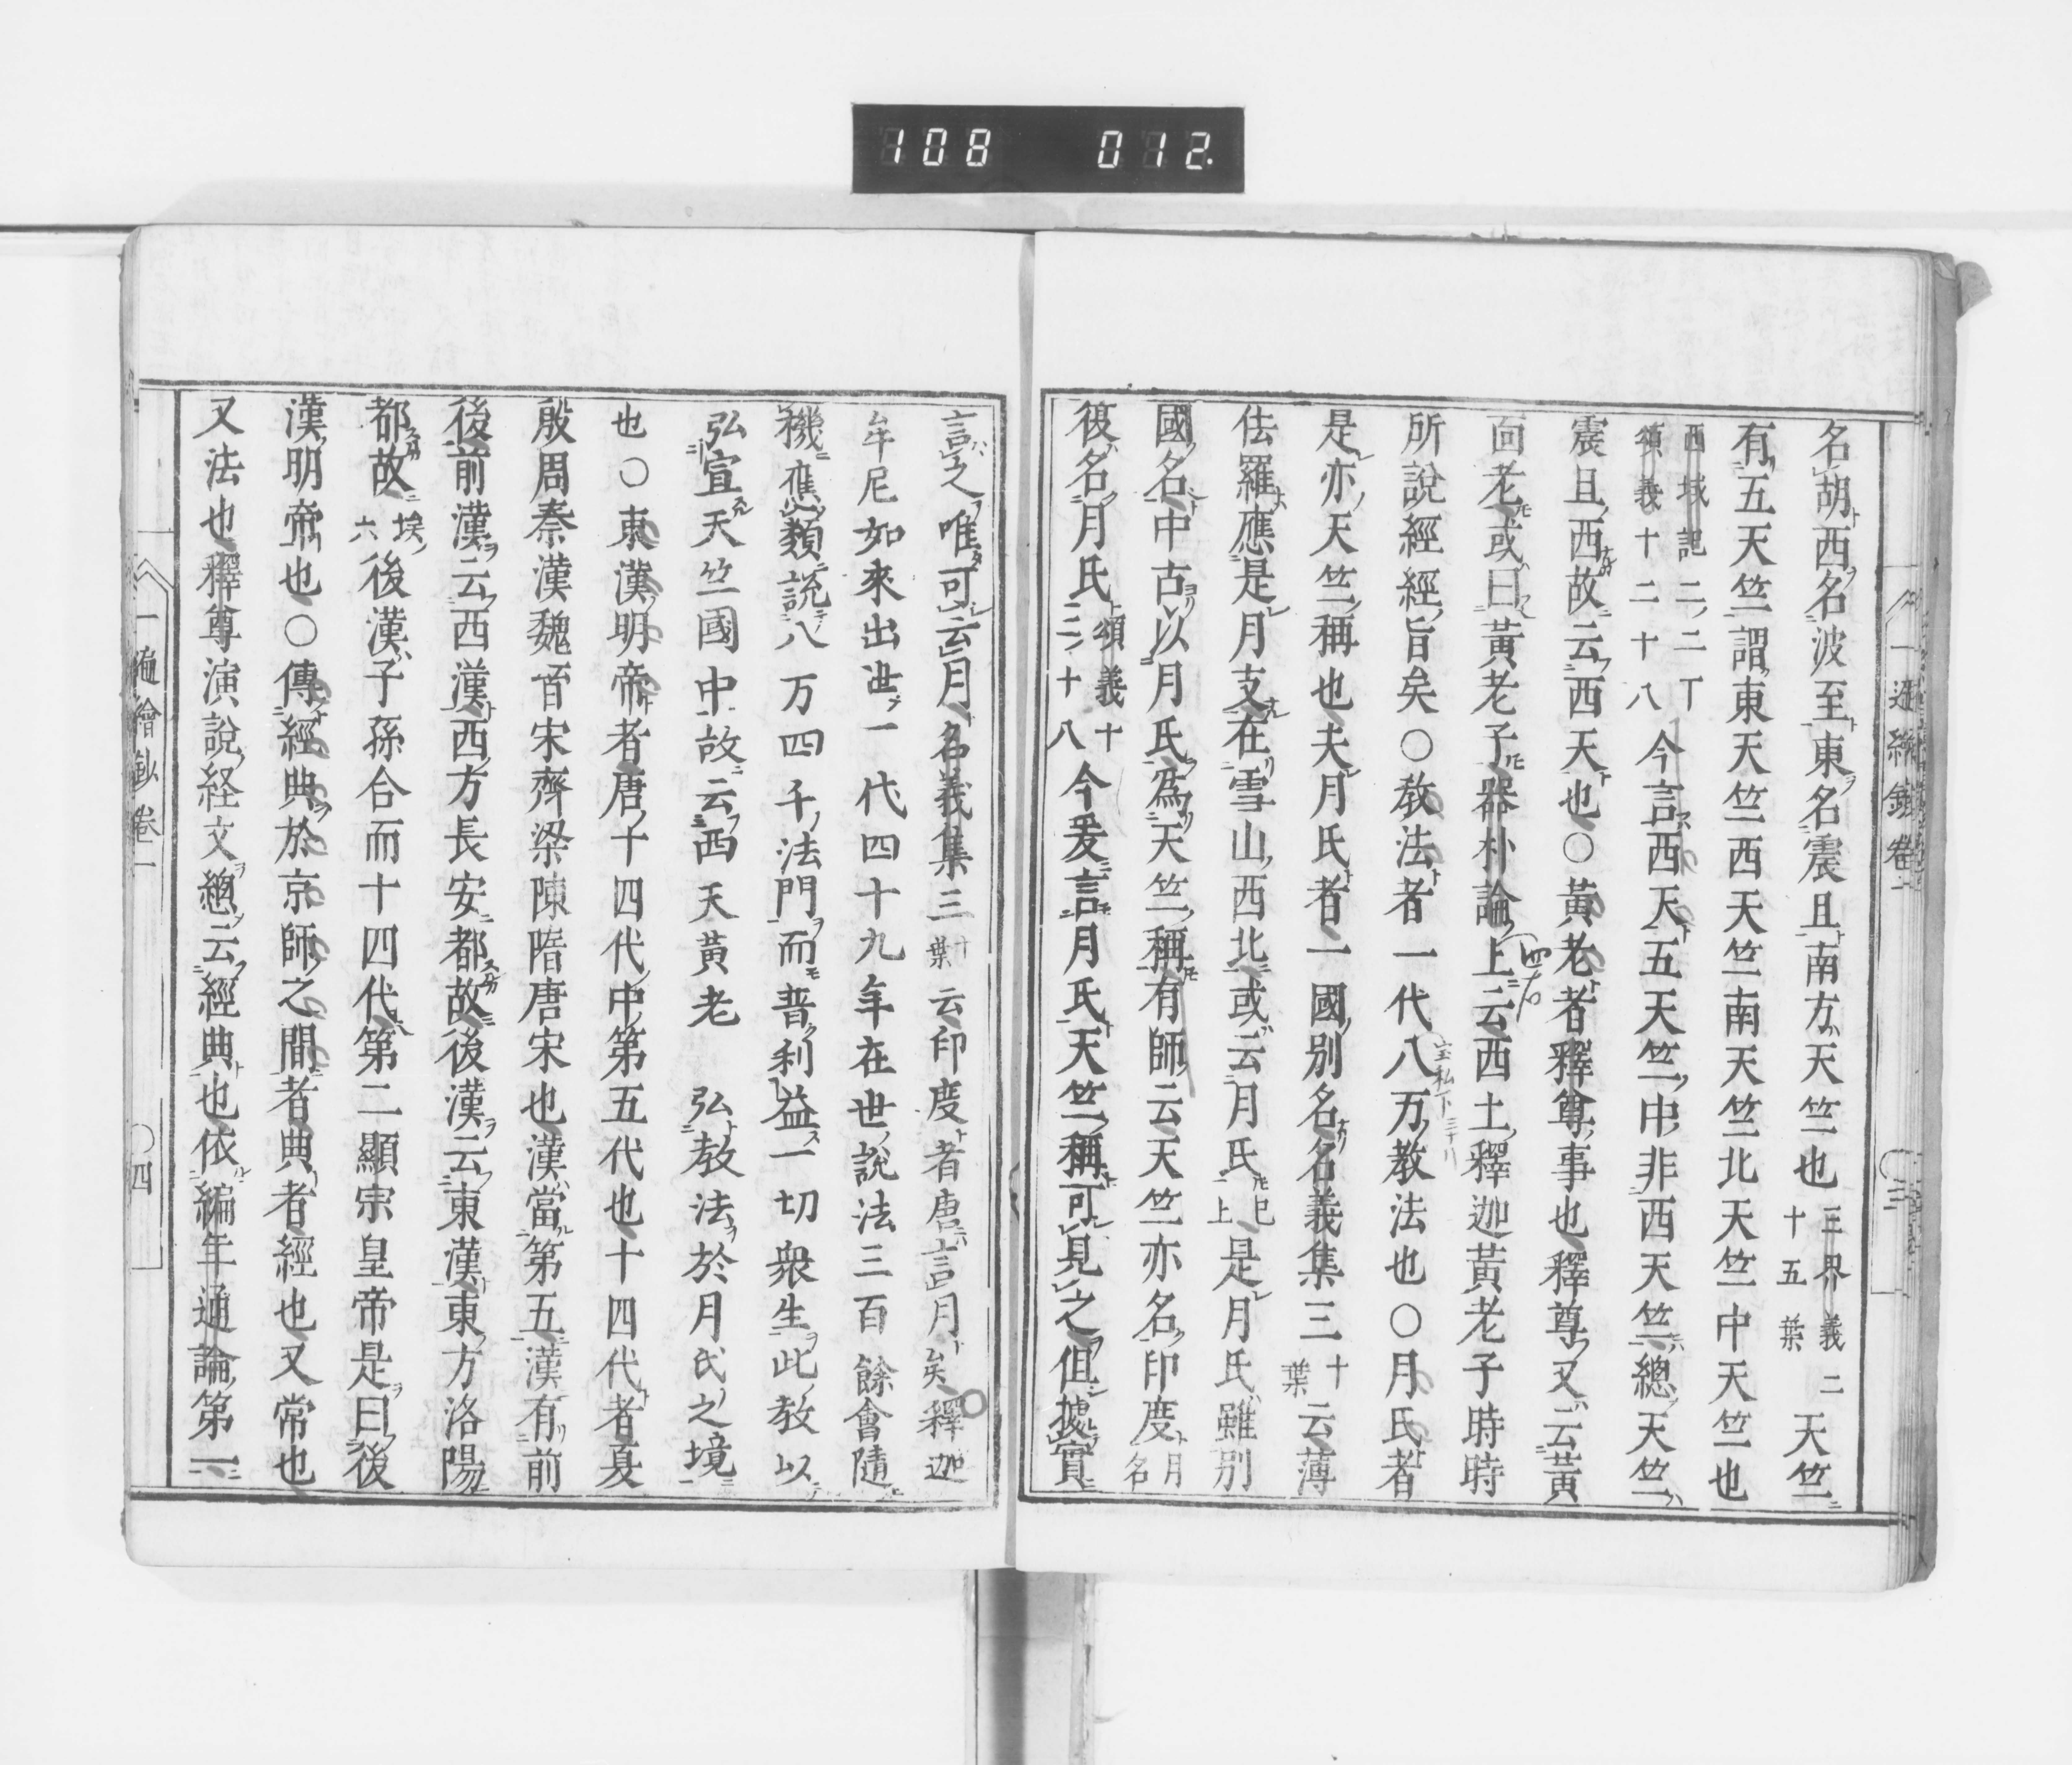 108 012.
名胡西名波至東名震旦南方天竺也三界義二十五葉天竺
有五天竺謂東天竺西天竺南天竺北天竺中天竺也
西域記二二丁頌義十二十八今言西天五天竺中非西天竺總天竺
震旦西故云西天也○黃老者釋尊事也釋尊又云黃
面老或曰黃老子器朴論上云西土釋迦黃老子時時
所說經經旨矣○教法者一代八万教法也○月氏者
是亦天竺稱也夫月氏者一國別名名義集三十葉云薄
佉羅應是月支在雪山西北或云月氏已上是月氏雖別
國名中古以月氏為天竺稱有師云天竺亦名印度月名
彼名月氏頌義十二十八今爰言月氏天竺稱可見之但據實
言之唯可云月名義集三十葉云印度者唐言月矣釋迦
牟尼如來出世一代四十九年在世說法三百餘會隨
機應類說八万四千法門而普利益一切衆生此教以
弘宣天竺國中故云西天黃老 弘教法於月氏之境
也○東漢明帝者唐十四代中第五代也十四代者夏
殷周秦漢魏晉宋齊梁陳隋唐宋也漢當第五漢有前
後前漢云西漢西方長安都故後漢云東漢東方洛陽
都故埃六後漢子孫合而十四代第二顯宗皇帝是曰後
漢明帝也○傳經典於京師之間者典者經也又常也
又法也釋尊演說経文總云經典也依編年通論第一
一遍繪鈔卷一 三
一遍繪鈔卷一 四